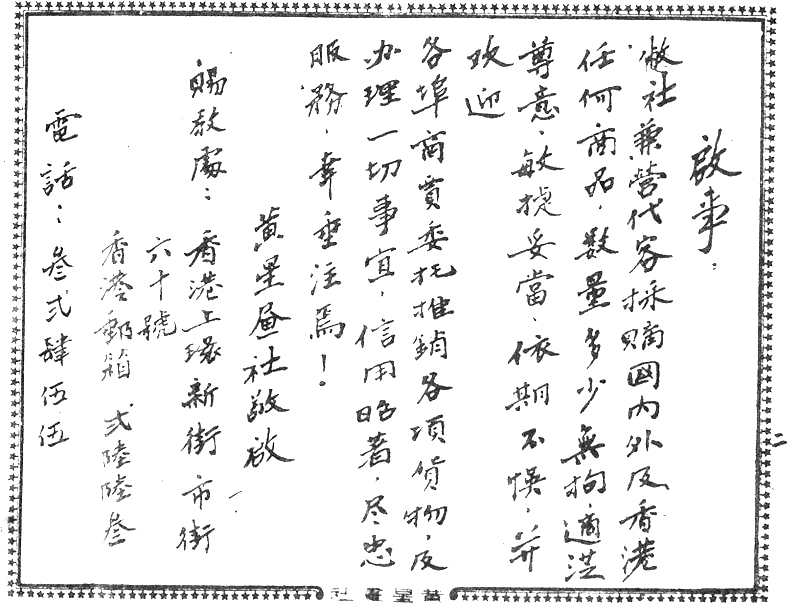 啟事：
敝社兼營代客採购國內外及香港
任何商品，数量多少無拘，適洪
尊意，敏捷妥當，依期不悮，并
欢迎
各埠商賈委托推銷各項貨物，及
办理一切事宜，信用昭著，尽忠
服務，幸垂注焉！
黄星畫社敬啟
賜教處：香港上環新街市街
六十號
香港郵箱 弍陸陸叁
電話：叁弍肆伍伍
二
黄星畫社